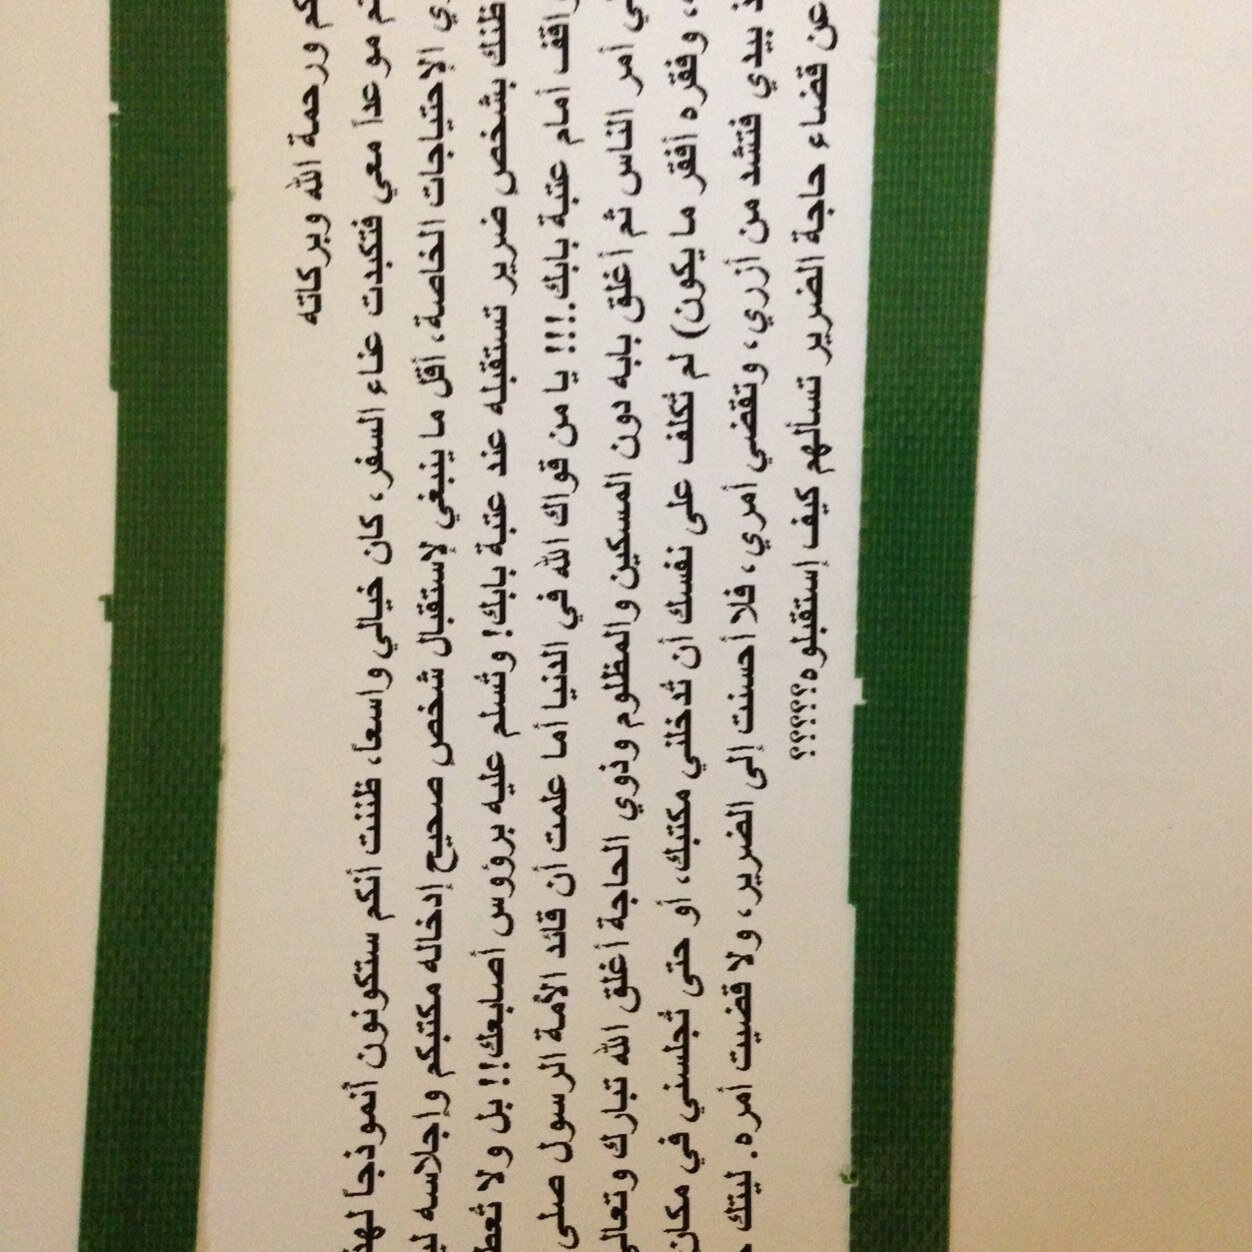 ورحمة الله وبركاته
موعداً معي فتكبدت عناء السفر، كان خيالي واسعاً، ظننت أنكم ستكونون أنموذجاً
الإحتياجات الخاصة، أقل ما ينبغي لإستقبال شخصٍ صحيح إدخاله مكتبكم وإجلاسه
ظنك بشخصٍ ضرير تستقبله عند عتبة بابك! وتُسلم عليه برؤوس أصابعك!! بل ولا
أمام عتبة بابك.!!! يا من قواك الله في الدنيا أما علمت أن قائد الأمة الرسول صلى
أمر الناس ثم أغلق بابه دون المسكين والمظلوم وذوي الحاجة أغلق الله تبارك وتعالى
، وفقره أفقر ما يكون) لم تُكلف على نفسك أن تُدخلني مكتبك، أو حتى تُجلسني في مكان
بيدي فتشد من أزري، وتقضي أمري، فلا أحسنت إلى الضرير، ولا قضيت أمره. ليتك
عن قضاء حاجة الضرير تسألهم كيف إستقبلوه؟؟؟؟؟